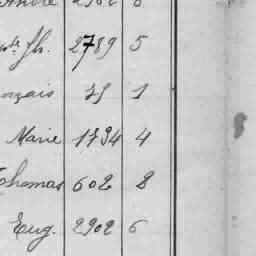 André
Jh. 2789 5
nçais 75 1
Marie 1734 4
Thomas 602 8
Eug. 2902 6